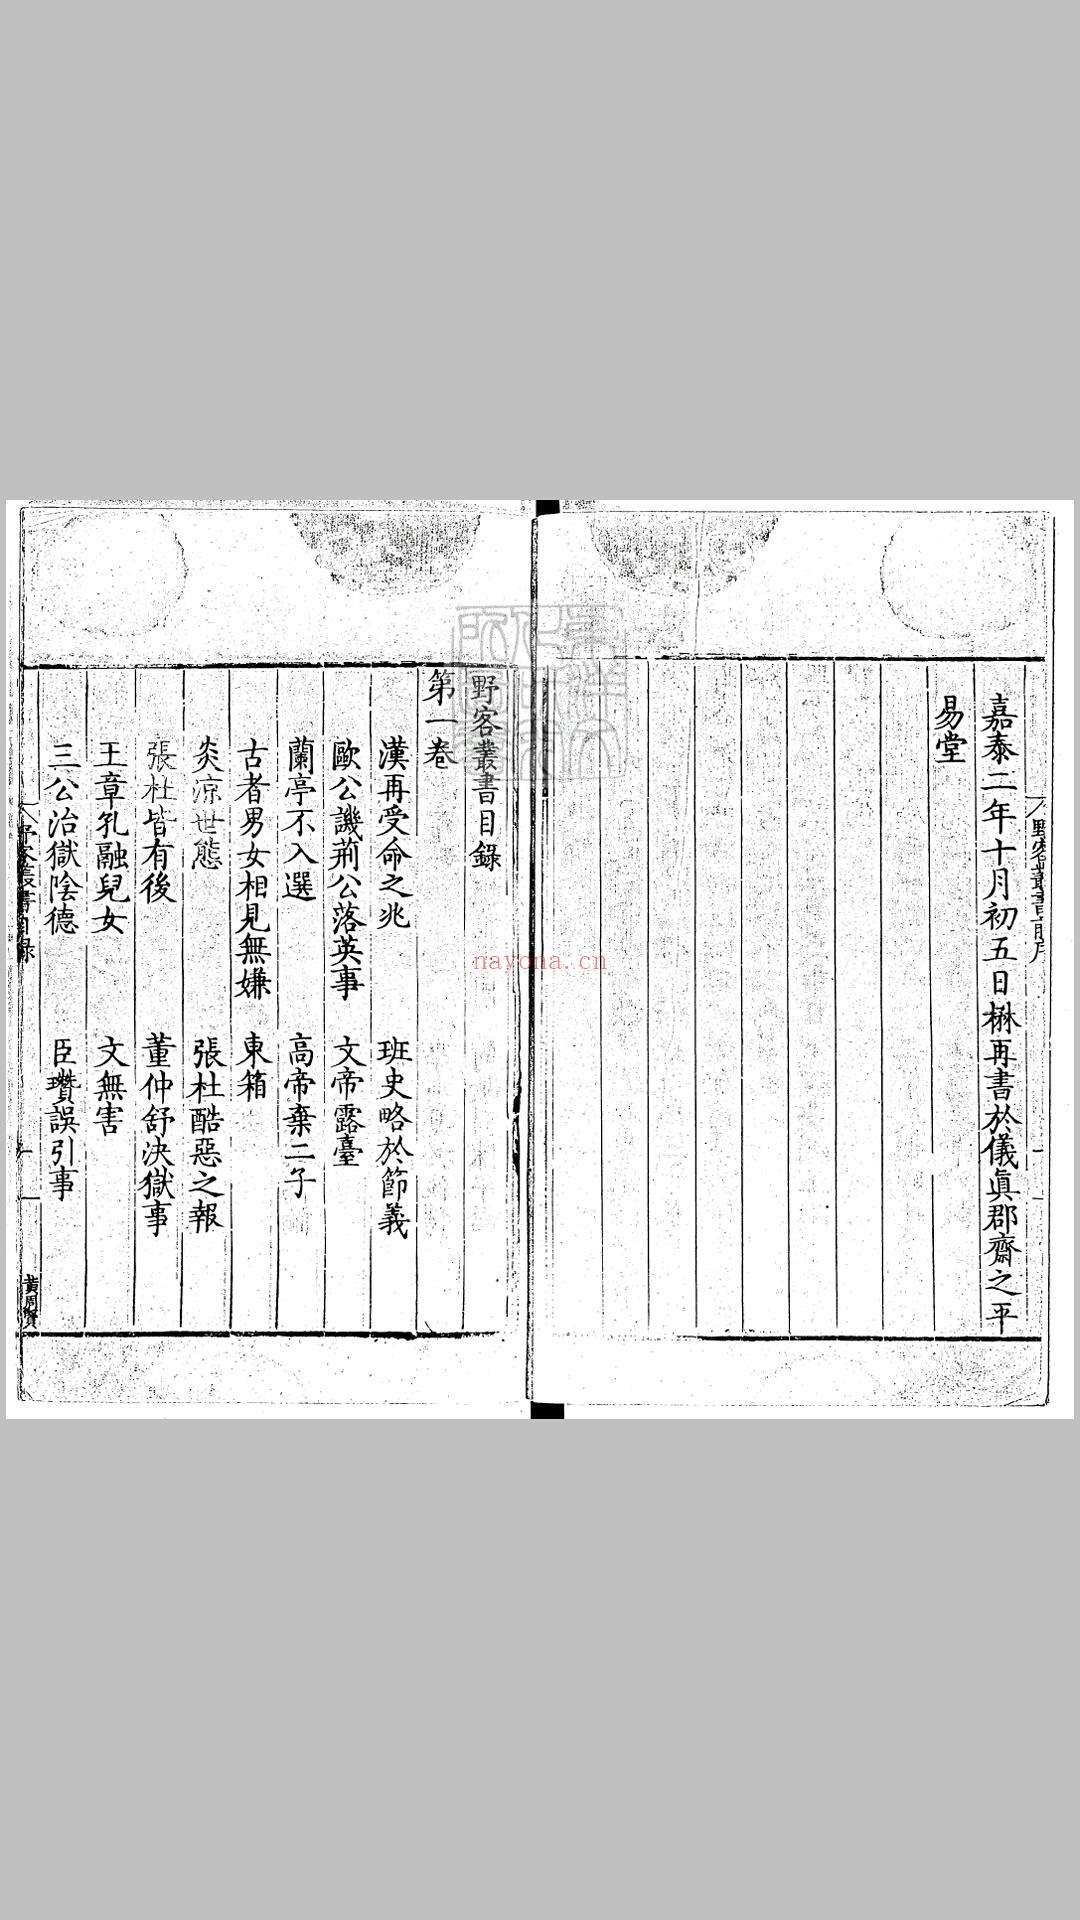 嘉泰二年十月初五日楙再書於儀眞郡齋之平
易堂
野客叢書目錄
第一卷
漢再受命之兆　班史略於節義
歐公譏荊公落英事　文帝露臺
蘭亭不入選　高帝棄二子
古者男女相見無嫌　東箱
炎涼世態　張杜酷惡之報
張杜皆有後　董仲舒決獄事
王章孔融兒女　文無害
三公治獄陰德　臣瓚誤引事
野客叢書目錄
一
黃周賢
nayona.cn